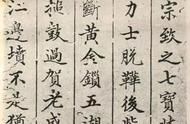 宗致之七寶
力士脫鞾後
斷黃金鎖五湖
撾鼓過賀老成
江邊墳不是猶